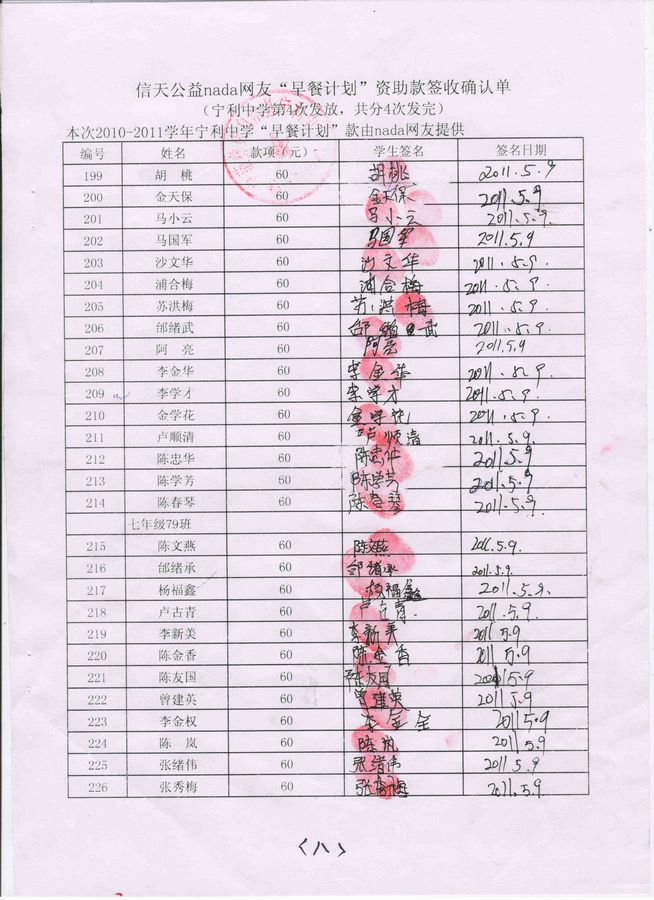 信天公益nada网友“早餐计划”资助款签收确认单
（宁利中学第4次发放，共分4次发完）
本次2010-2011学年宁利中学“早餐计划”款由nada网友提供
编号 姓名 款项（元） 学生签名 签名日期
199 胡 桃 60 胡桃 2011.5.9
200 金天保 60 金天保 2011.5.9
201 马小云 60 马小云 2011.5.9
202 马国军 60 马国军 2011.5.9
203 沙文华 60 沙文华 2011.5.9.
204 浦合梅 60 浦合梅 2011.5.9.
205 苏洪梅 60 苏洪梅 2011.5.9.
206 邰绪武 60 2011.5.9.
207 阿 亮 60 阿亮 2011.5.9
208 李金华 60 李金华 2011.5.9.
209 李学才 60 李学才 2011.5.9.
210 金学花 60 2011.5.9.
211 卢顺清 60 卢顺清 2011.5.9.
212 陈忠华 60 陈忠仲 2011.5.9
213 陈学芳 60 陈学芳 2011.5.9
214 陈春琴 60 陈春琴 2011.5.9.
七年级79班
215 陈文燕 60 陈文燕 2011.5.9.
216 邰绪承 60 邰绪承 2011.5.9.
217 杨福鑫 60 杨福鑫 2011.5.9.
218 卢古青 60 2011.5.9.
219 李新美 60 李新美 2011 5.9
220 陈金香 60 陈金香 2011 5.9
221 陈友国 60 陈友国 2011 5.9
222 曾建英 60 曾建英 2011 5.9
223 李金权 60 李金全 2011 5.9
224 陈 岚 60 陈岚 2011 5.9
225 张绪伟 60 张绪伟 2011.5.9
226 张秀梅 60 张秀梅 2011.5.9.
〈八〉